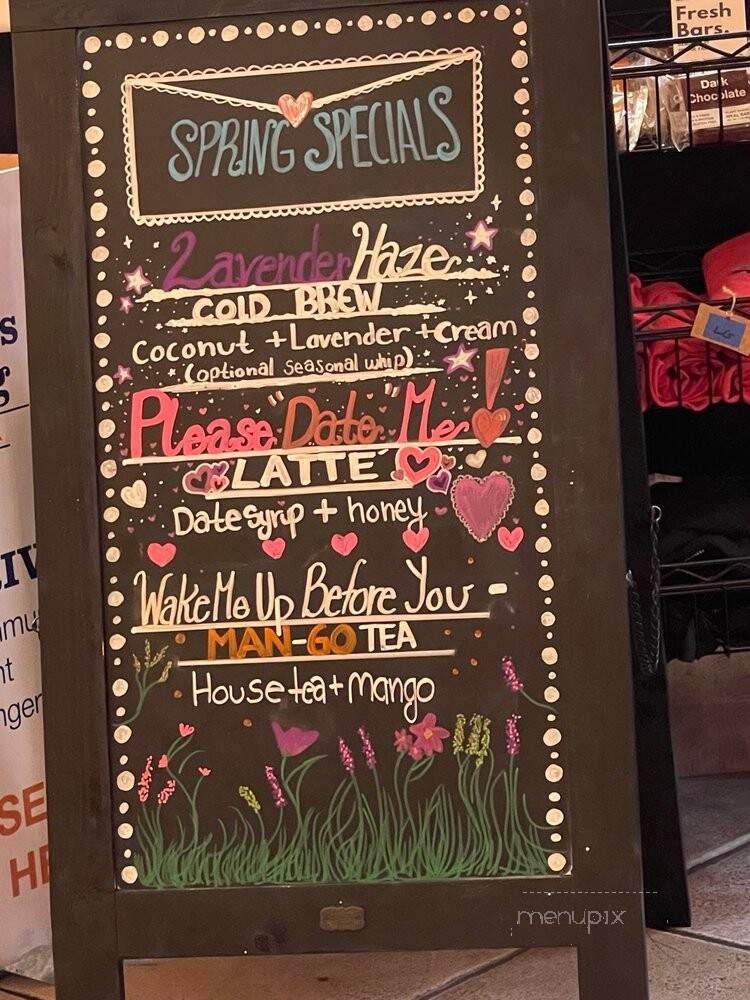 Fresh
Bars.
Dark
Chocolate
SPRING SPECIALS
Lavender Haze
COLD BREW
Coconut + Lavender + Cream
(optional seasonal whip)
Please "Date" Me!
LATTE
Date syrup + honey
LG
Wake Me Up Before You -
MAN-GO TEA
House tea + Mango
menupix